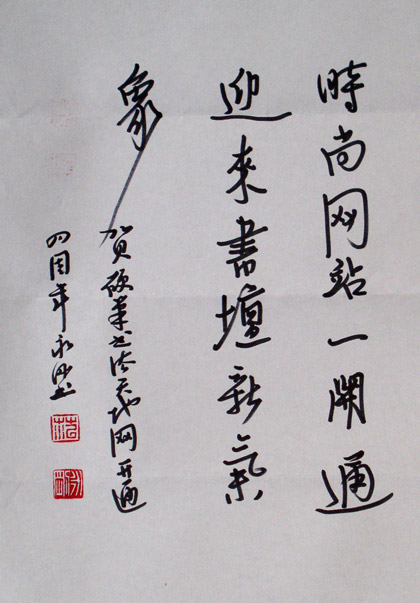 時尚网站一開通
迎來書壇新氣
象
贺硬筆书法天地网开通
四周年永书